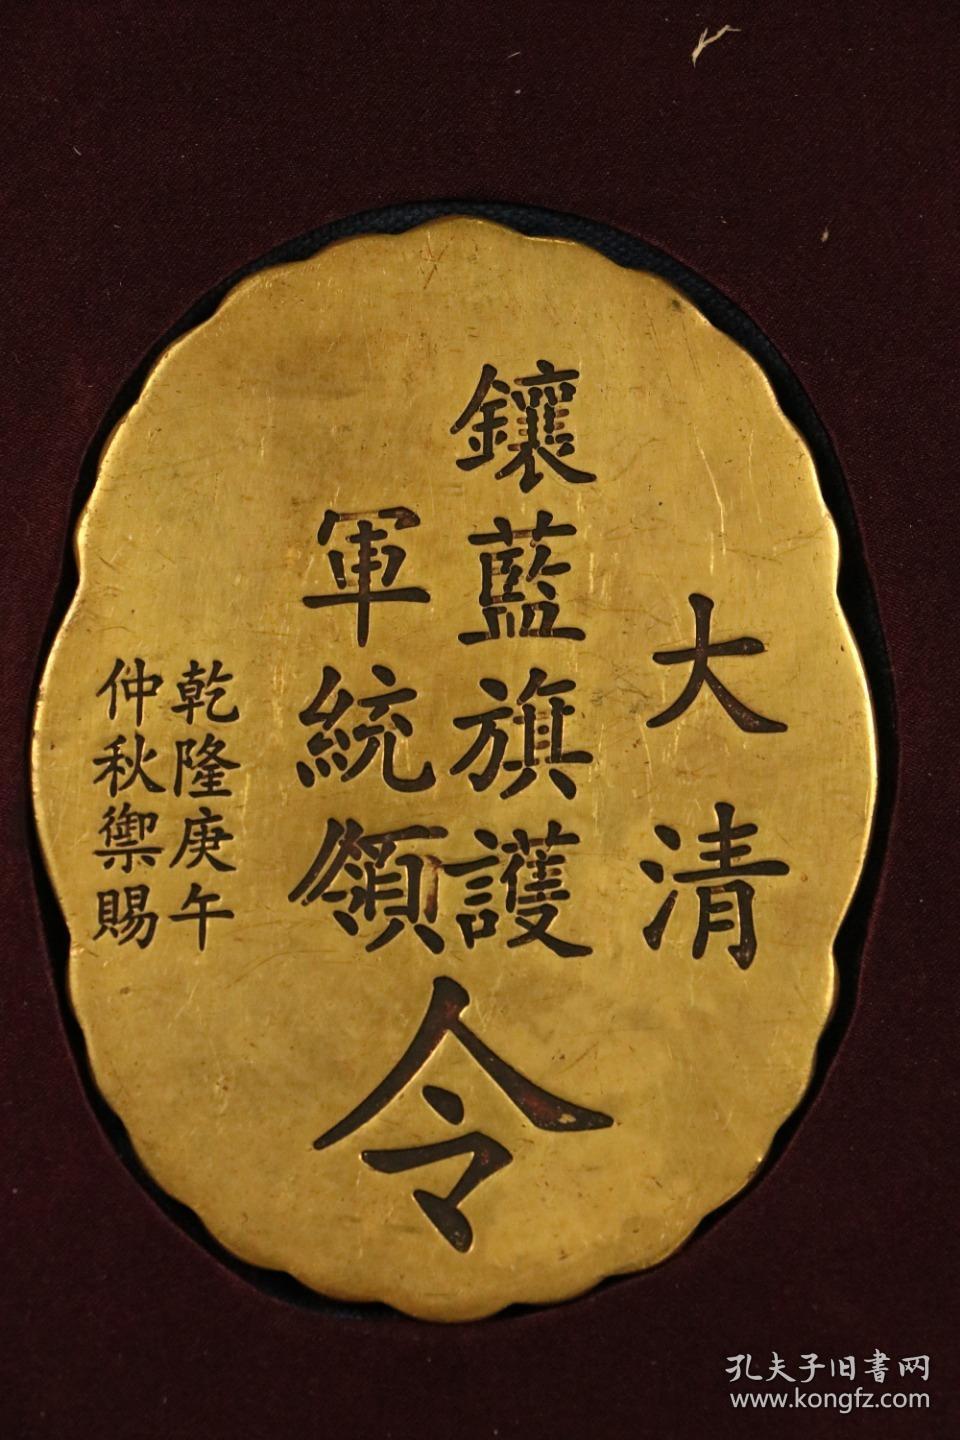 大清
鑲藍旗護
軍統領
令
乾隆庚午
仲秋御賜
孔夫子旧書网
www.kongfz.com